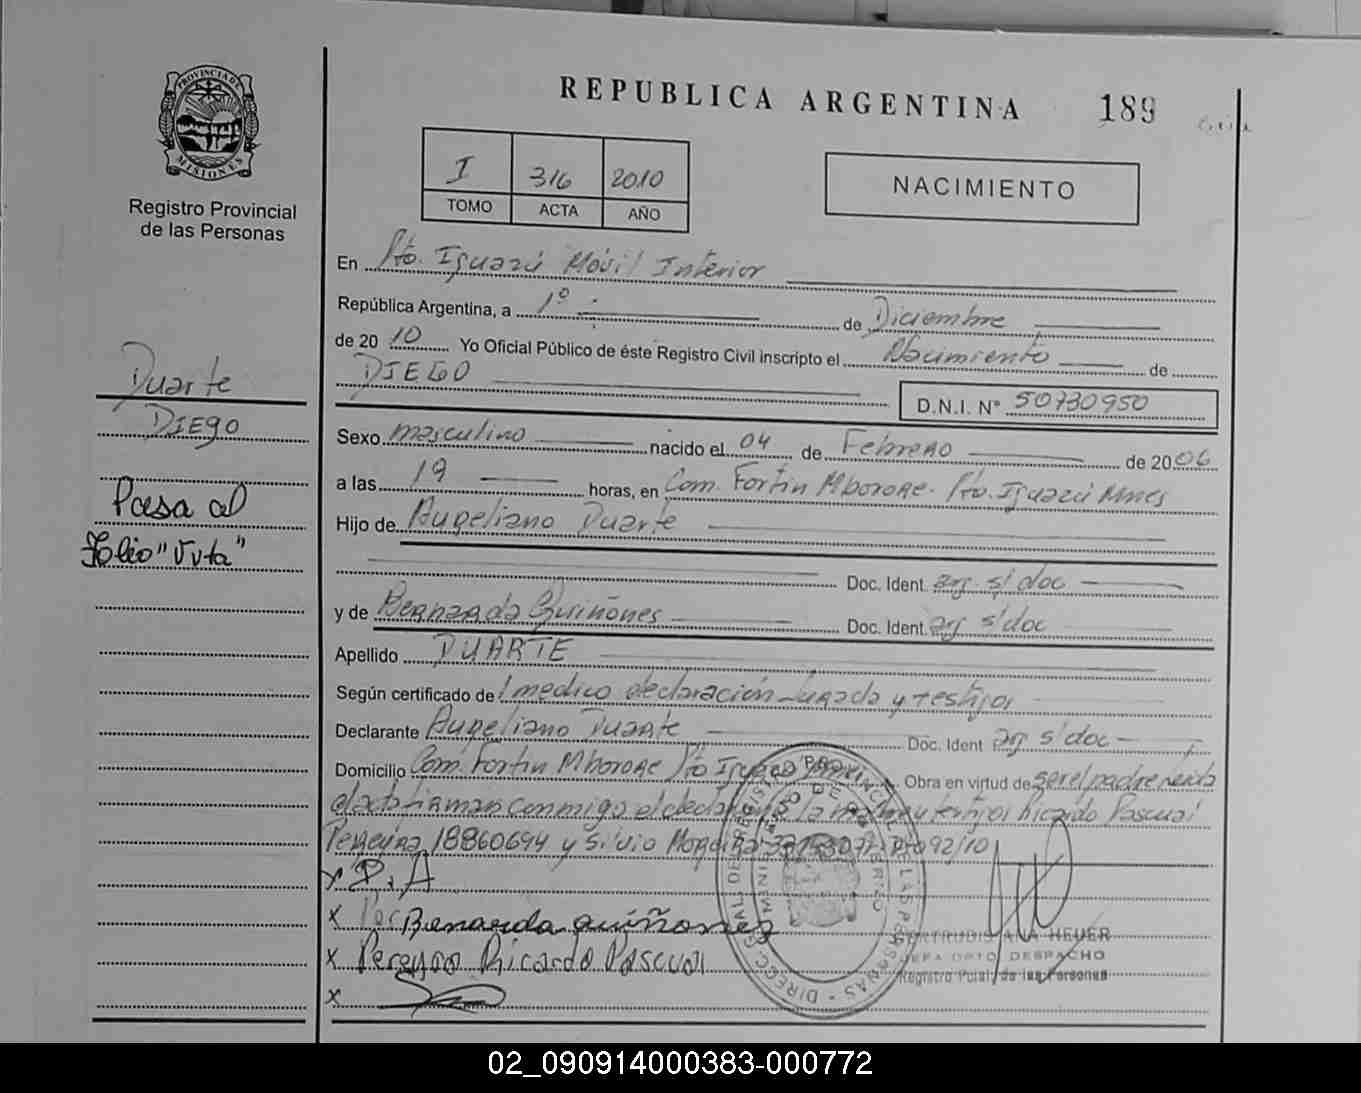 REPUBLICA ARGENTINA 189
PROVINCIA DE MISIONES
Registro Provincial
de las Personas
I 316 2010
TOMO ACTA AÑO
NACIMIENTO
En Pto. Iguazú Móvil Interior
República Argentina, a 1º de Diciembre
de 20 10 Yo Oficial Público de éste Registro Civil inscripto el Nacimiento de
DIEGO D.N.I. N° 50730950
Duarte
DIEGO
Pasa al
Folio "Vvta"
Sexo masculino nacido el 04 de Febrero de 20 06
a las 19 horas, en Com. Fortin Mborore. Pto. Iguazú Mnes
Hijo de Aureliano Duarte
Doc. Ident. arg. s/doc
y de Bernarda Quiñones Doc. Ident. arg s/doc
Apellido DUARTE
Según certificado de 1 medico declaración Jurada y testigos
Declarante Aureliano Duarte Doc. Ident arg s/doc
Domicilio Com. Fortin Mborore Pto Iguazú Obra en virtud de ser el padre Leida
el acta firman conmigo el declarante la madre y testigos Ricardo Pascual
Pereyra 18860694 y Silvio Moreira 092/10
x P. A
x Benarda quiñones
x Pereyra Ricardo Pascual
x
GERTRUDIS ANA HEUER
JEFA DPTO DESPACHO
Registro Pcial. de las Personas
02_090914000383-000772